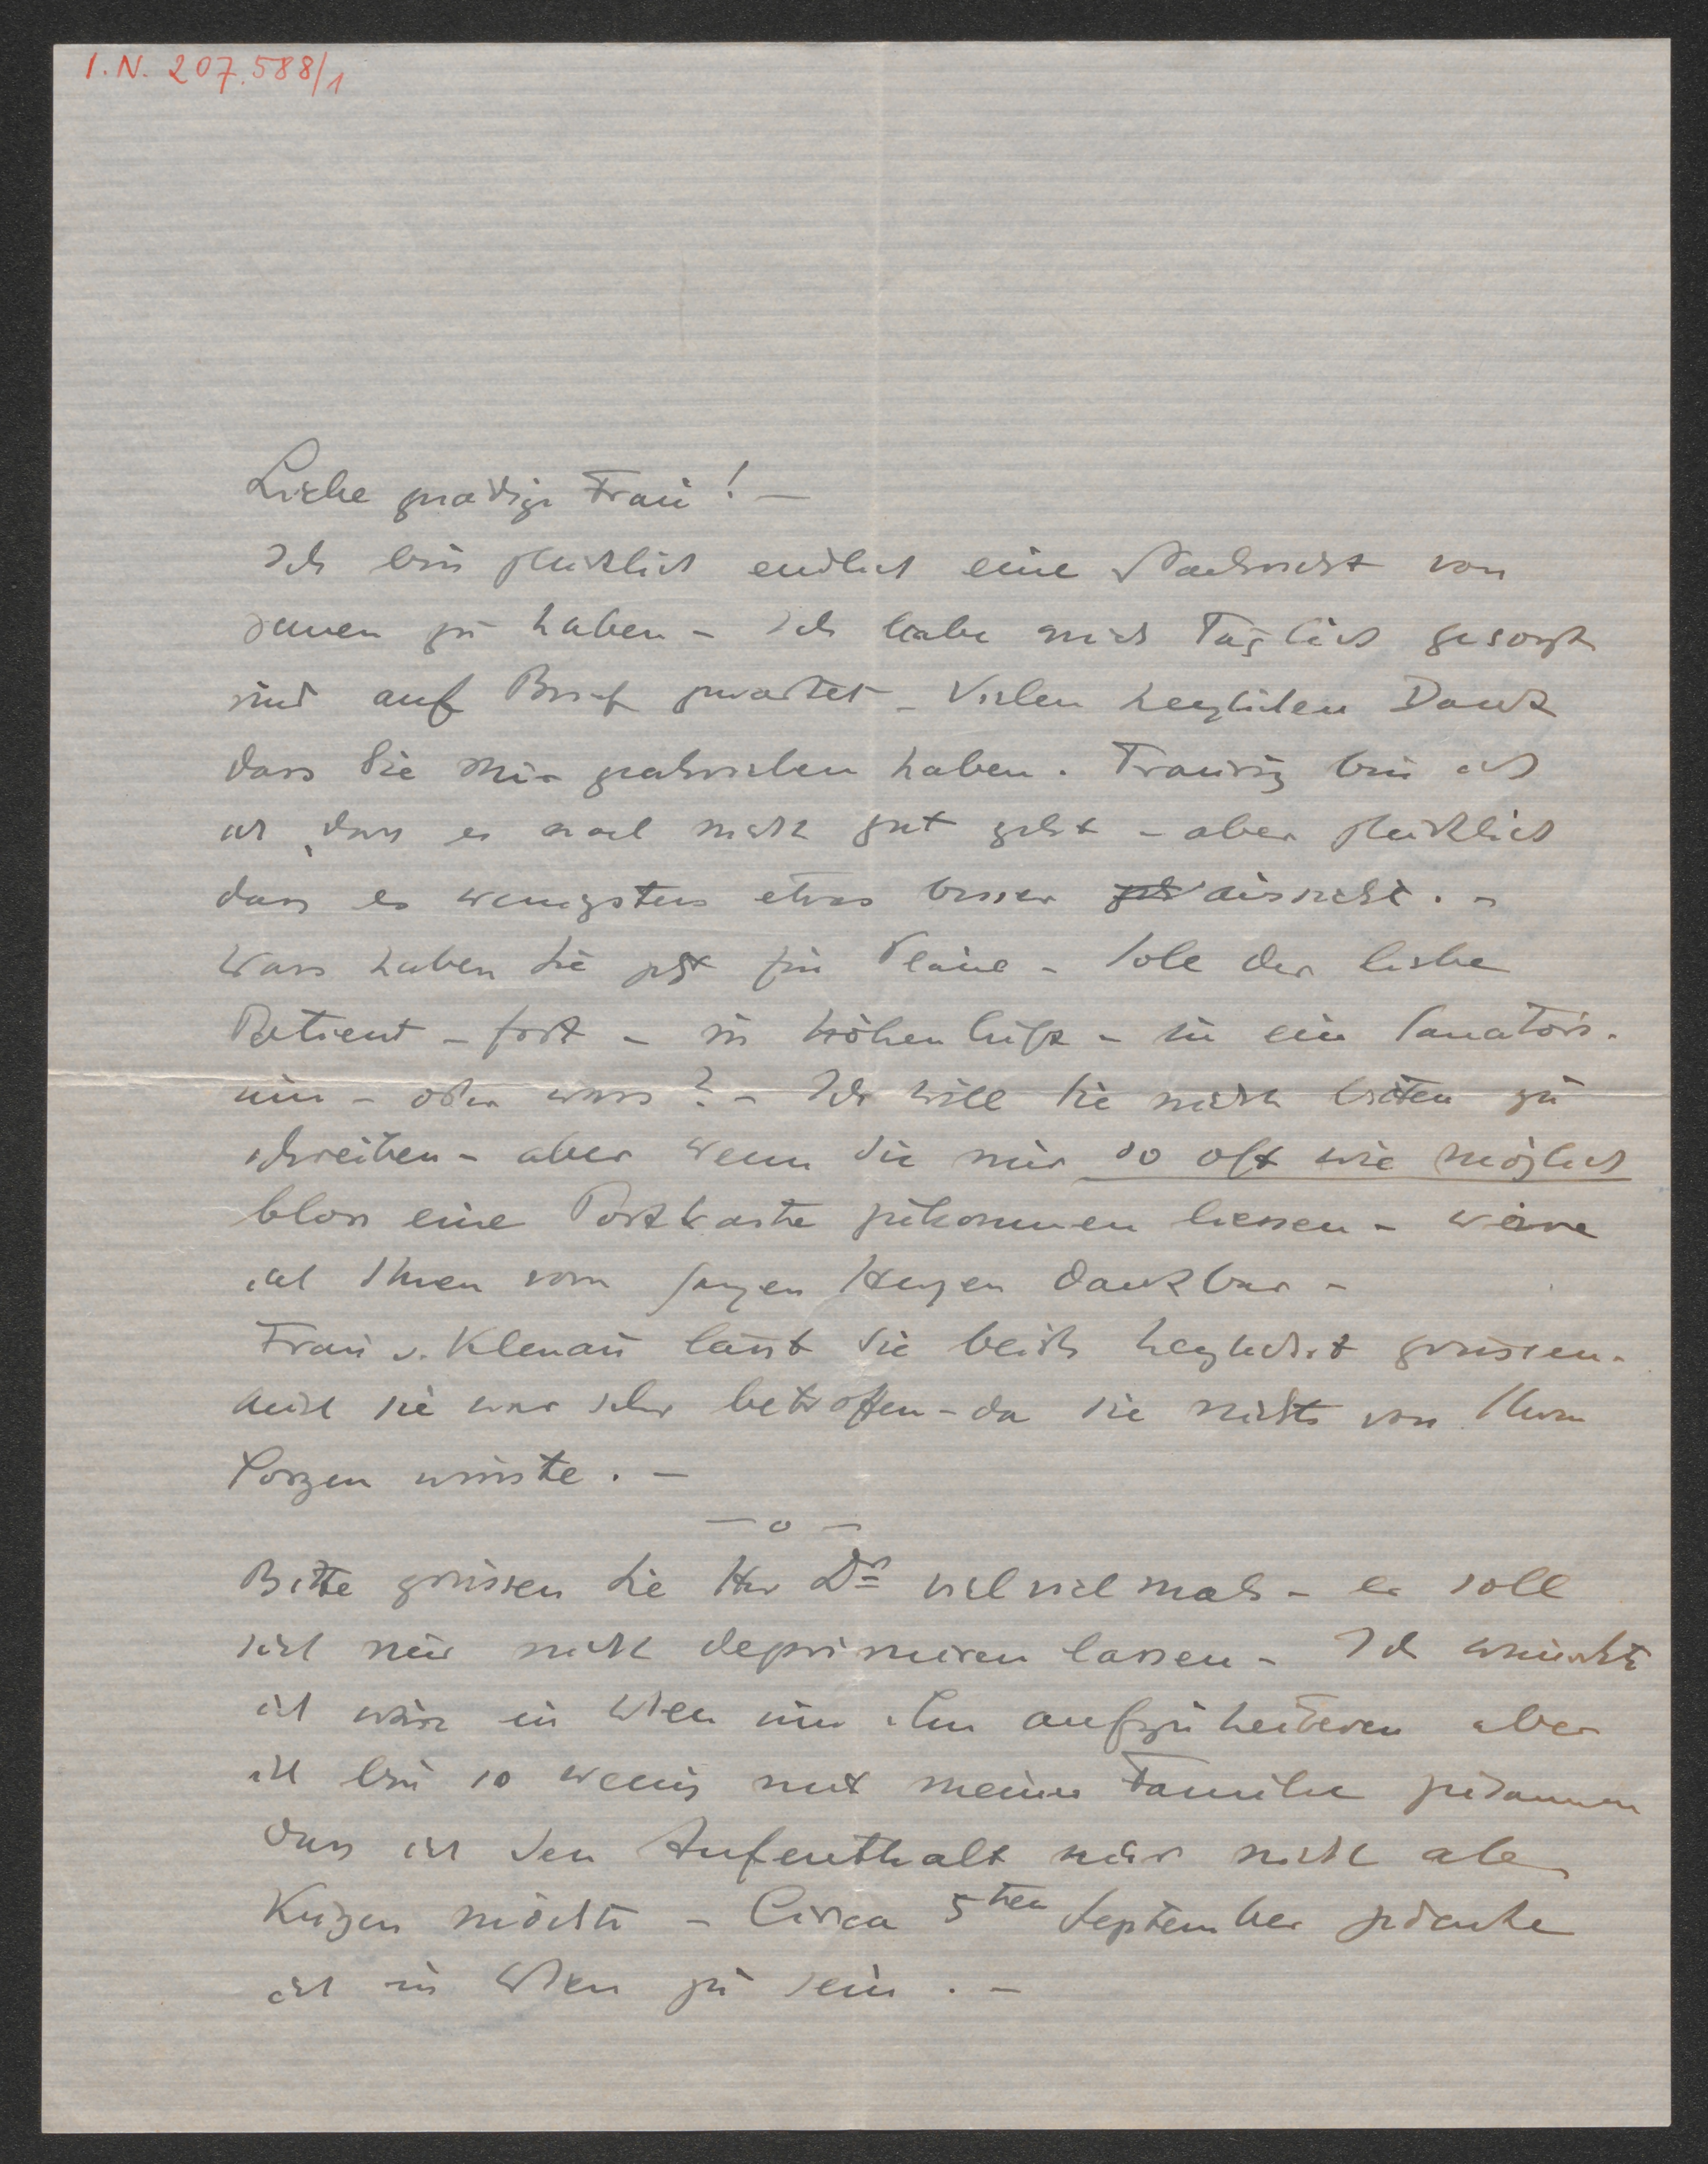 I.N. 207.588/1
Liebe gnädige Frau! –
Ich bin glücklich endlich eine Nachricht von
Ihnen zu haben – Ich habe mich täglich gesorgt
und auf Brief gewartet – Vielen herzlichen Dank
dass Sie mir geschrieben haben. Traurig bin ich
dass es noch nicht gut geht – aber glücklich
dass es wenigstens etwas besser aussieht. –
Wass haben Sie jetzt für Pläne – Soll der liebe
Patient – fort – in Höhenluft – in ein Sanatori-
um – oder wass? – Ich will Sie nicht bitten zu
schreiben – aber wenn Sie mir so oft wie möglich
bloss eine Postkarte zukommen liessen – wäre
ich Ihnen vom ganzen Herzen dankbar –
Frau v. Klenau lässt Sie beide herzlichst grüssen.
Auch sie war sehr betroffen – da sie nichts von Ihren
Sorgen wusste. –
– o –
Bitte grüssen Sie Hr Dr vielvielmals – er soll
sich nur nicht deprimiren lassen – Ich wünschte
ich wäre in Wien um ihn aufzuheitern aber
ich bin so wenig mit meiner Familie zusammen
dass ich den Aufenthalt hier nicht ab
kürzen möchte – Circa 5ten September gedenke
ich in Wien zu sein. –